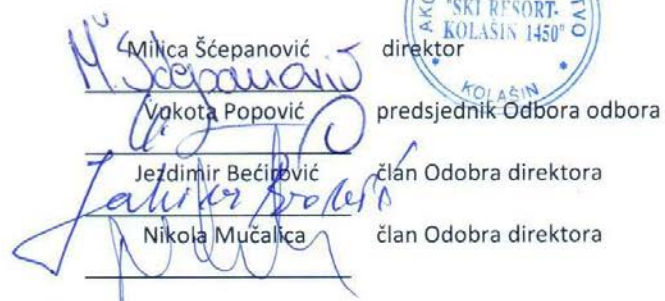 "SKI RESORT-
KOLAŠIN 1450"
KOLAŠIN
Milica Šćepanović direktor
M. Šćepanović
Vukota Popović predsjednik Odbora odbora
Jezdimir Bećirović član Odobra direktora
Nikola Mučalica član Odobra direktora